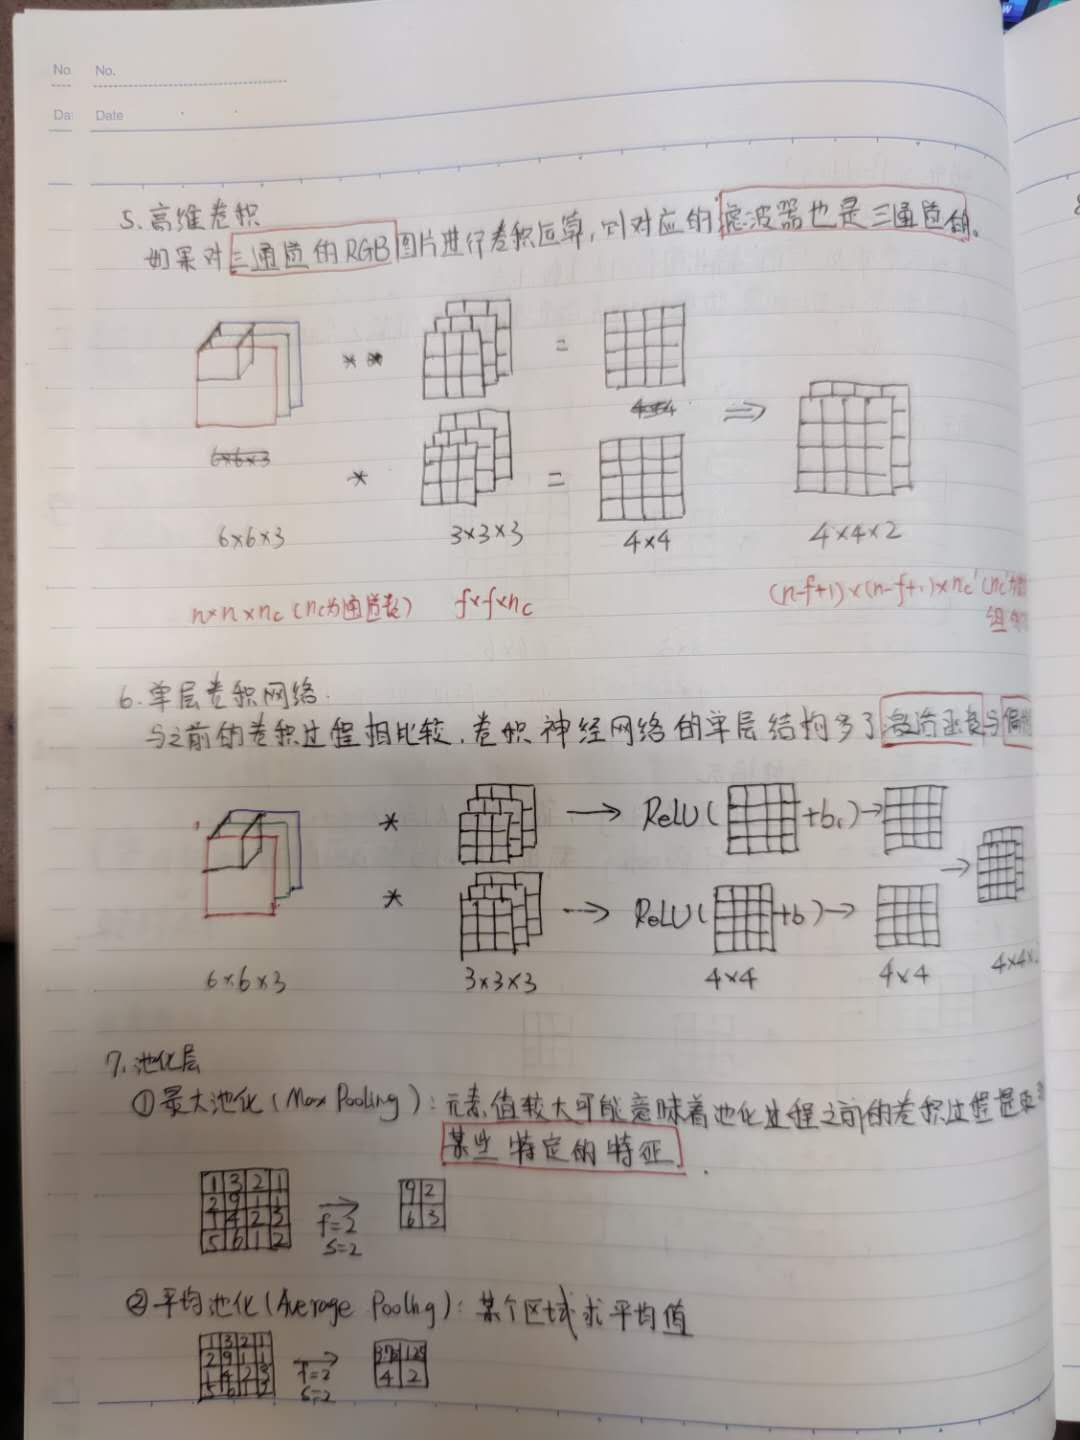 No. No.
Da Date
5.高维卷积
如果对三通道的RGB图片进行卷积运算,则对应的滤波器也是三通道的。
* * * =
4×4 ⇒
6×6×3
* =
6×6×3 3×3×3 4×4 4×4×2
n×n×nc (nc为通道数) f×f×nc (n-f+1)×(n-f+1)×nc' (nc'为
组
6.单层卷积网络.
与之前的卷积过程相比较,卷积神经网络的单层结构多了激活函数与偏
* → ReLU( +b₁)→
→
* → ReLU( +b)→
6×6×3 3×3×3 4×4 4×4 4×4×
7.池化层
①最大池化(Max Pooling):元素值较大可能意味着池化过程之前的卷积过程提取
某些特定的特征.
1 3 2 1
2 9 1 1
1 4 2 3
5 6 1 2
→
f=2
s=2
9 2
6 3
②平均池化(Average Pooling):某个区域求平均值
1 3 2 1
2 9 1 1
1 4 2 3
5 6 1 2
→
f=2
s=2
3.75 1.25
4 2